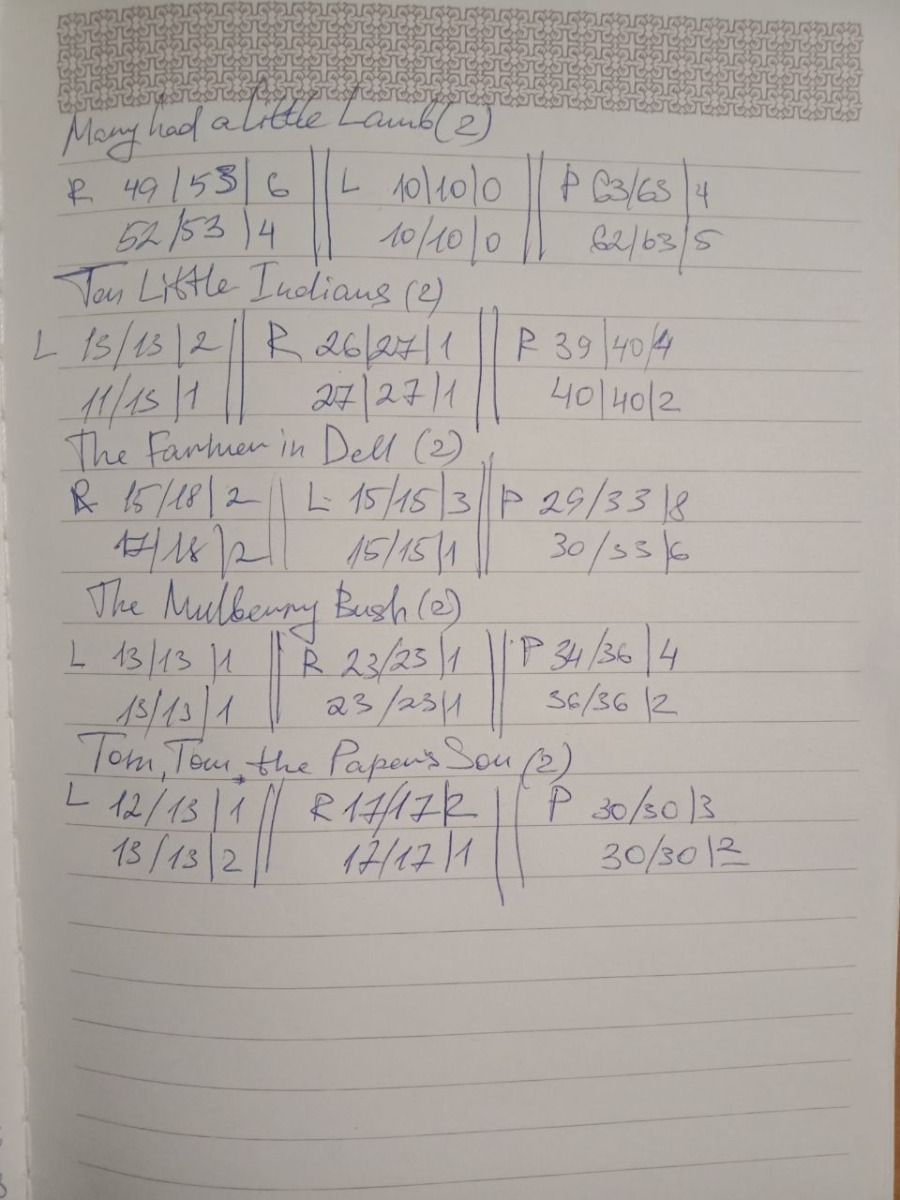 Mary had a little Lamb (2)
R 49/53|6 || L 10|10|0 || P 63/63|4
52/53|4 || 10/10|0 || 62/63|5
Ten Little Indians (2)
L 13/13|2 || R 26|27|1 || P 39|40|4
11/13|1 || 27|27|1 || 40|40|2
The Farmer in Dell (2)
R 15/18|2 || L 15/15|3 || P 29/33|8
17/18|2 || 15/15|1 || 30/33|6
The Mulberry Bush (2)
L 13/13|1 || R 23/23|1 || P 34/36|4
13/13|1 || 23/23|1 || 36/36|2
Tom, Tom, the Paper's Son (2)
L 12/13|1 || R 17/17|2 || P 30/30|3
13/13|2 || 17/17|1 || 30/30|2